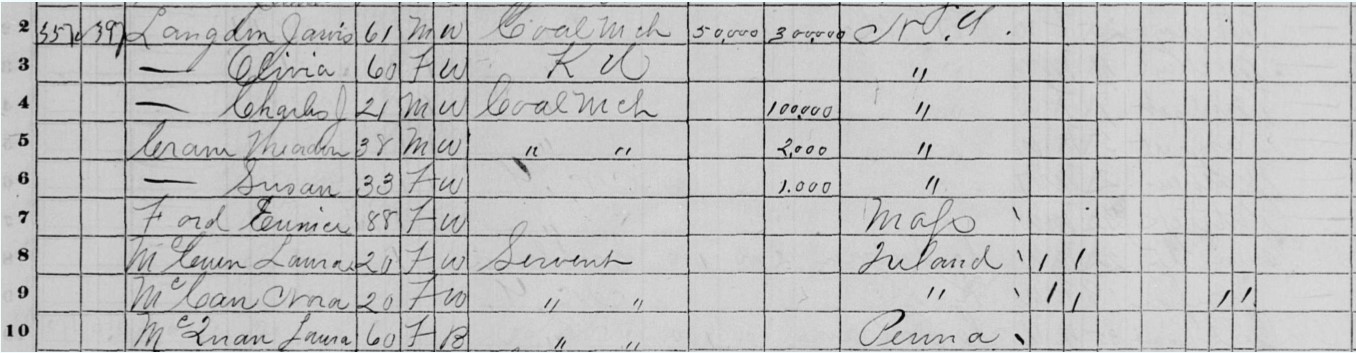 2 357 397 Langdon Jarvis 61 M W Coal Mch 50,000 300,000 N.Y.
3 — Olivia 60 F W K H "
4 — Charles J 21 M W Coal Mch 100,000 "
5 Crane Theadin 38 M W " " 2,000 "
6 — Susan 33 F W 1.000 "
7 Ford Eunice 88 F W Mass \
8 McCuen Laura 20 F W Servent Ireland \ / /
9 McCan Nora 20 F W " " " \ / / / /
10 McQuan Laura 60 F B " " Penna \